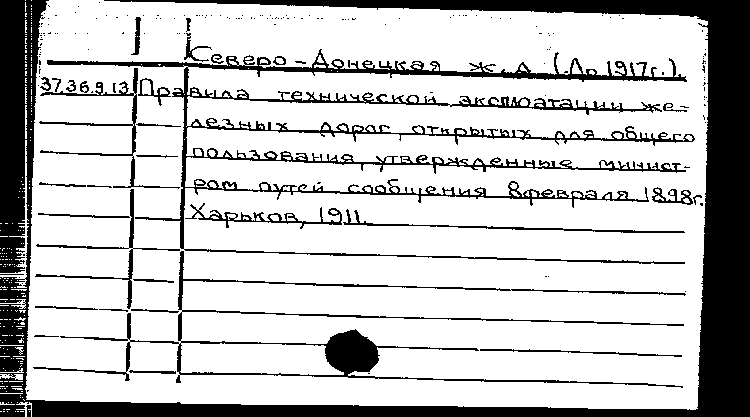 Северо-Донецкая ж. д (До 1917г.).
37.36.9.13 Правила технической эксплоатации же-
лезных дорог, открытых для общего
пользования, утвержденные минист-
ром путей сообщения 8 февраля 1898г.
Харьков, 1911.